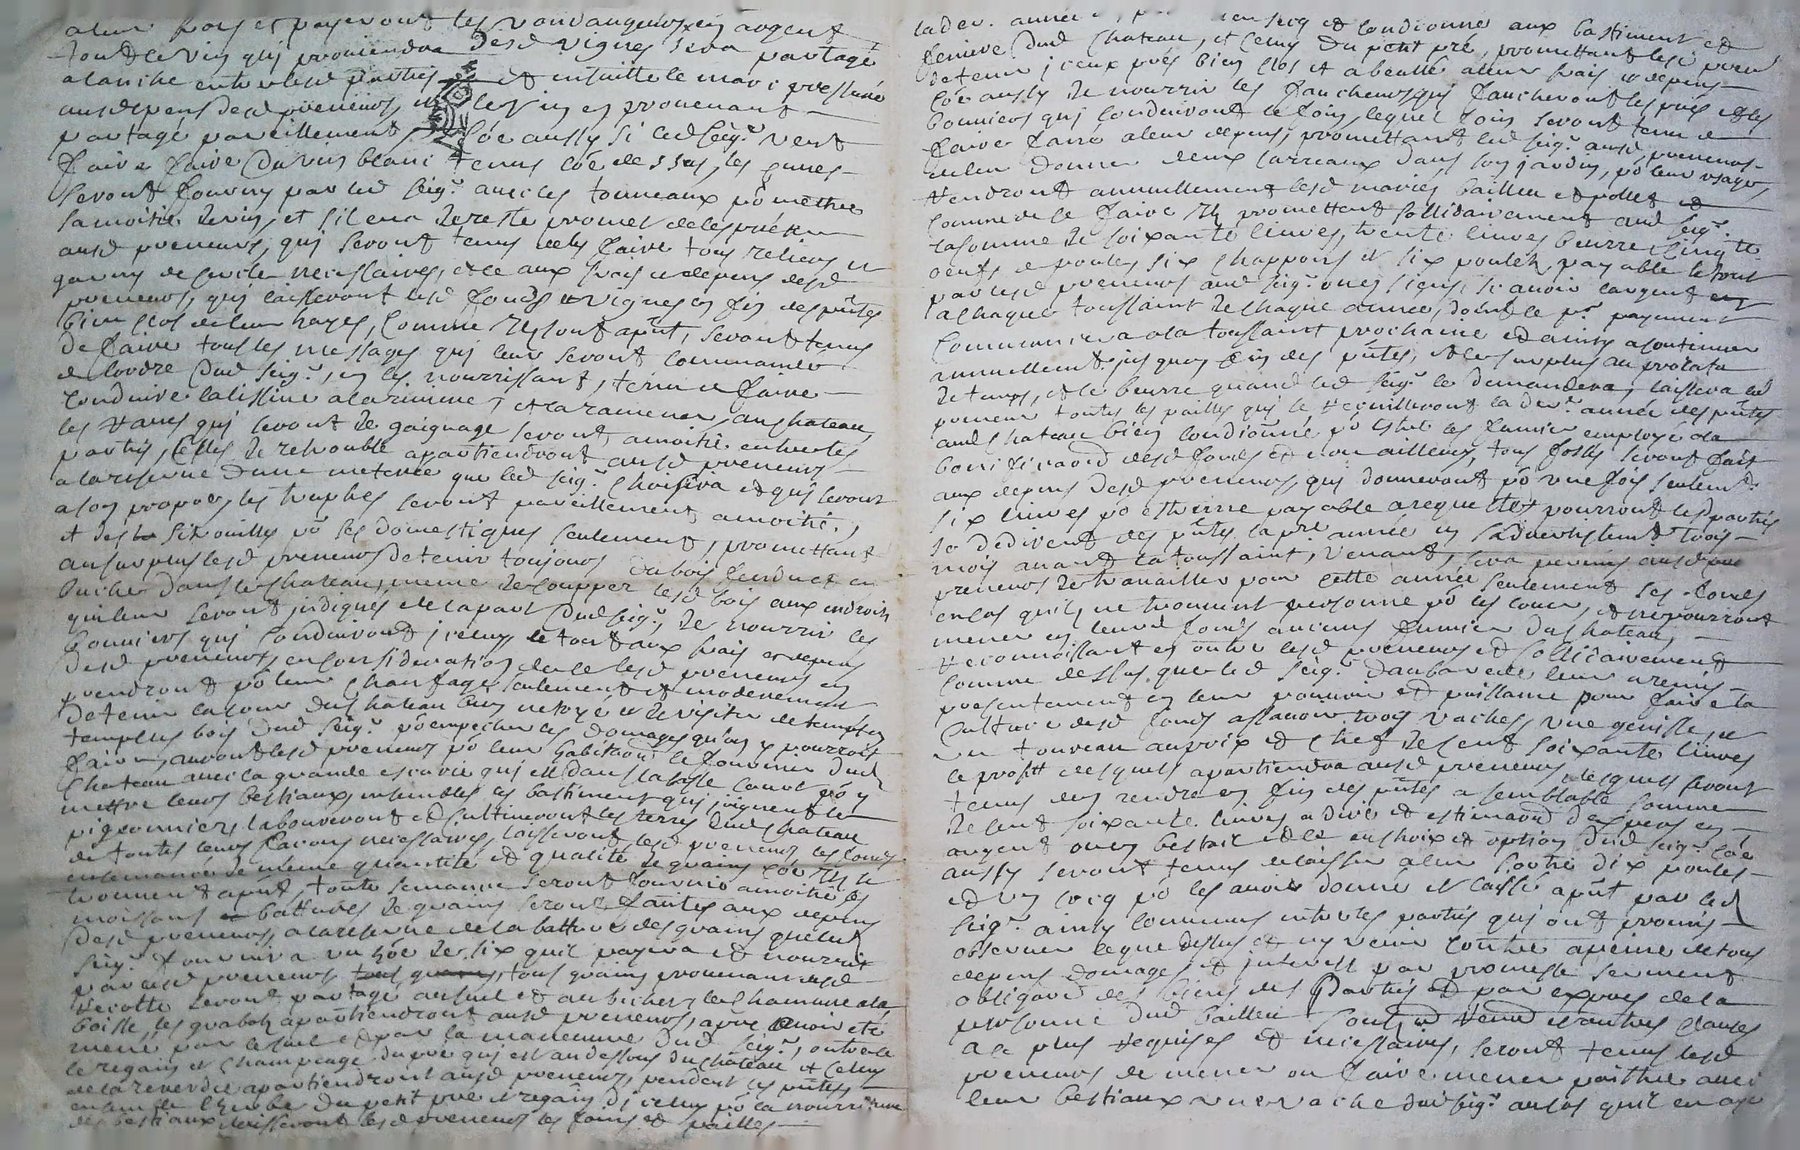 a leur frais et payeront les vandangeurs en argent
tout le vin qui proviendra desd vignes sera partagé
a lanche entre lesd parties et ensuitte le marc pressuré
aux depens desd preneurs, et le vin en provenant
partagé pareillement, coe aussy si led seigr veut
faire faire du vin blanc tenus coe dessus, les cuves
seront fourny par led seigr avec les tonneaux po mettre
sa moitié de vin, et sil en a de reste promet de les prester
ausd preneurs, qui seront tenus de les faire tous relier et
garny de cercles necessaires, et ce aux frais et depens desd
preneurs, qui laisseront lesd fonds et vignes en fin des pntes
bien clos de leur hayes, comme ils sont apnt, seront tenus
de faire tous les messages qui leur seront commandés
de lordre dud seigr, en les nourrissant, tenu de faire
conduire la lissive a la riviere, et la ramener au chateau
les raves qui seront de gaignage seront a moitié entre les
parties, celles de retrouble apartiendront ausd preneurs
a la reserve dune meterée que led seigr choisira et qui seront
a son propre, les truphes seront pareillement a moitié,
et des sitrouilles po ses domestiques seulement, promettant
au surplus lesd preneurs de tenir toujours du bois fendu et en
bucher dans le chateau, meme de coupper lesd bois aux endroits
qui leur seront indiqués de la part dud seigr, de nourrir les
bouviers qui conduiront iceluy, le tout aux frais et depens
desd preneurs, en consideration de ce lesd preneurs en
prendront po leur chaufage seulement et moderement
de tenir la cour du chateau bien netoyé et de visiter de temps en
temps les bois dud seigr po empecher les domages qu'on y pourroit
faire, auront lesd preneurs po leur habitaon le couvert dud
chateau avec la grande escurie qui est dans la basse cour po y
mettre leurs bestiaux, ensembles les bastiments qui joignent le
pigeonnier, laboureront et cultiveront les terres dud chateau
de toutes leurs façons necessaires, laisseront lesd preneurs les fonds
ensemancé de meme quantité et qualité de grains coe ils se
trouvent apnt, toute semance seront fournie a moitié les
moissons et battures de grains seront faittes aux depens
desd preneurs, a la reserve de la batture des grains que led
seigr fournira un hoe de six qu'il payera et nourrit
par lesd preneurs, tous grains provenant desd
recolte seront partagé au sueil et au bichet, le chanvre a la
baisse, les grabots apartiendront ausd preneurs, apres avoir eté
mené par le sueil et par la maneuvre dud seigr, outre le
le regain et champeage du pré qui est au dessous du chateau et celuy
de la reverdie apartiendront ausd preneurs, pendant les pntes,
ensemble l'herbe du petit pré et regain d'iceluy po la nourriture
des bestiaux laisseront lesd preneurs les foins et pailles
lader. année conditionné aux bastiment et
feniere dud chateau, et celuy du petit pré, promettant lesd preneurs
de tenir iceux prés bien clos et abeallé a leur frais et depens
coe aussy de nourrir les faucheurs qui faucheront les prés et les
bouviers qui conduiront le foin, lequel foin seront tenu de
faire faire a leur depens, promettant led seigr ausd preneurs
de leur donner deux carreaux dans son jardin, po leur usage,
rendront annuellement lesd mariés baillée et pollet
comme de ce faire ils promettent sollidairement aud seigr
la somme de soixante livres, trente livres beurre, cinq te
oeufs de poules, six chappons et six poulets, payable le tout
par lesd preneurs aud seigr ou es siens, si avoir l'argent
a chaque toussaint de chaque année, dont le pr payement
commencera a la toussaint prochaine et ainsy a continuer
annuellemt jusques a fin des pntes, et le surplus au prorata
de temps, et le beurre quand led seigr le demandera, laissera led
preneur toutes les pailles qui se recuilleront la derr année des pntes
aud chateau bien conditionné po estre les fumier employé a la
bonificaon desd fonds et non ailleurs, tous fossés seront fait
aux depens desd preneurs, qui donneront po une fois seulemt
six livres po estreine payable a requette, pourront lesd parties
se dedirent des pntes la pre année en s'advertissant trois
mois avant la toussaint, venant, sera permis ausd
preneurs de travailler pour cette année seulement ses fonds
en cas qu'ils ne trouvent personne po les louer, et ne pourront
mener en leurd fonds aucuns fumier du chateau,
reconnoissant en outre lesd preneurs et sollidairement
comme dessus que led seigr Daubarede leur a remis
presentement en leur pouvoir et puissance pour faire la
culture desd fonds assavoir trois vaches, une genisse, et
un toureau au prix et chef de cent soixante livres
le profit desquels apartiendra ausd preneurs, lesquels seront
tenus de rendre en fin des pntes a semblable somme
de cent soixante livres a dire et estimaon d'expers en
argent ou en bestail et ce au choix et option dud seigr coe
aussy seront tenus de laisser a leur sortie dix poules
et un cocq po les avoir donné et laissé apnt par led
seigr ainsy convenus entre les parties qui ont promis
observer le que dessus et ny venir contre a peine de tous
depens domages et interest par promesse serment
obligaon des biens des parties et par expres de la
personne dud baillée soub et rend et autres clauses
a ce plus requises et necessaires, seront tenus lesd
preneurs de mener ou faire mener paistre avec
leur bestiaux une vache dud seigr au cas qu'il en aye